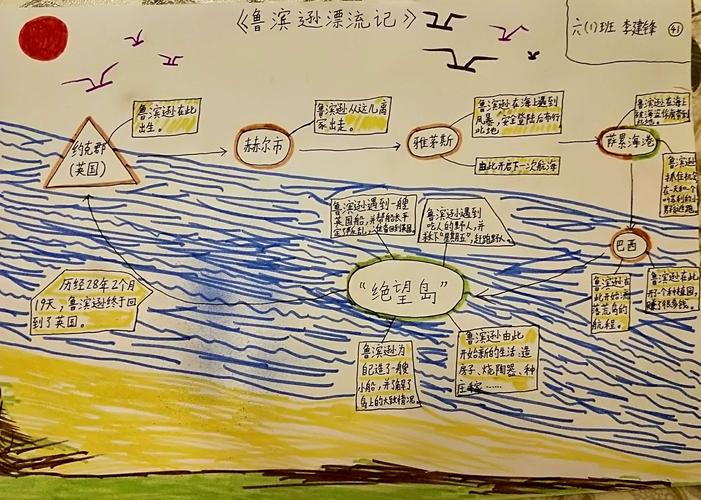 《鲁滨逊漂流记》
六(1)班 李建锋 41
鲁滨逊在此
出生。
约克郡
(英国)
鲁滨逊从这儿离
家出走。
赫尔市
鲁滨逊在海上遇到
风暴,安全登陆后步行
此地
雅茅斯
由此开启下一次航海
鲁滨逊在海上
萨累海港
鲁滨逊
巴西
鲁滨逊由
此开始流
落荒岛的
航程。
鲁滨逊在此
开个种植园,
赚了很多钱。
鲁滨逊遇到一艘
英国船,并帮船长平
鲁滨逊遇到
吃人的野人,并
救下“星期五”,赶跑野人。
“绝望岛”
鲁滨逊为
自己造了一艘
小船,并了解了
岛上的大致情况。
鲁滨逊由此
开始新的生活:造
房子、烧陶器、种
庄稼……
历经28年2个月
19天,鲁滨逊终于回
到了英国。